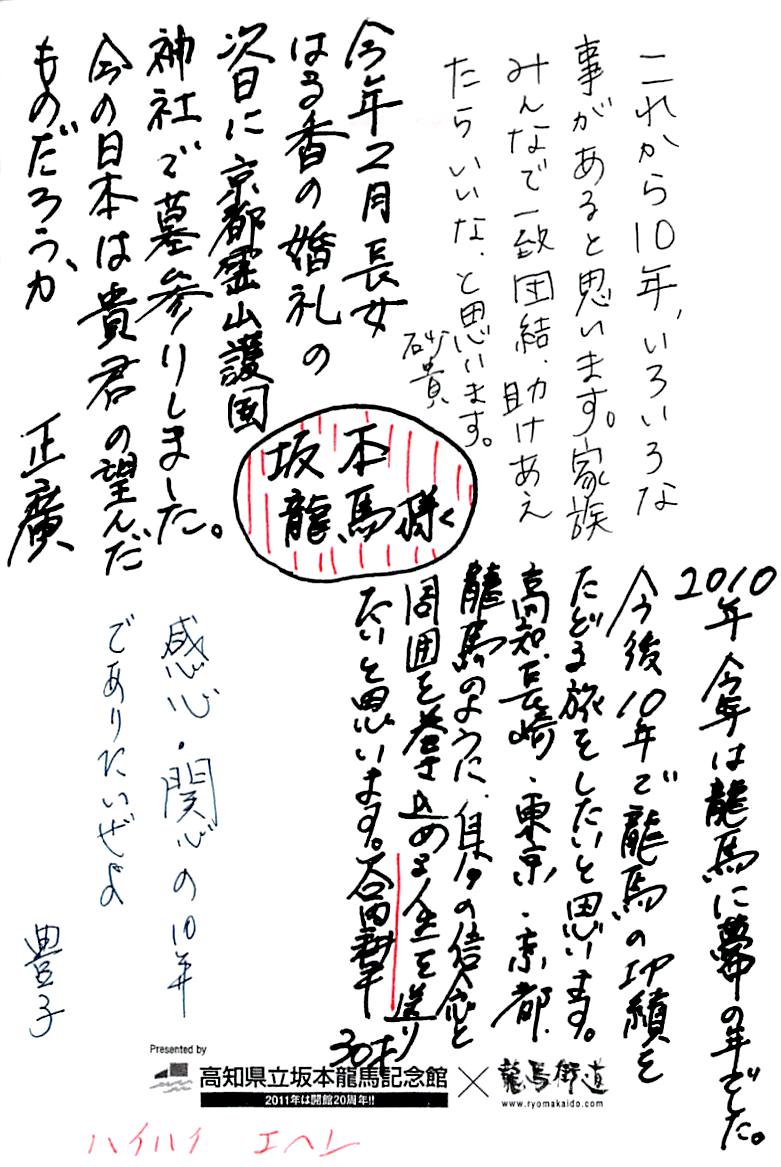 これから10年、いろいろな
事があると思います。家族
みんなで一致団結、助けあえ
たらいいな、と思います。
砂貴
今年2月長女
はる香の婚礼の
次日に京都霊山護国
神社で墓参りしました。
今の日本は貴君の望んだ
ものだろうか
正廣
坂本
龍馬様へ
2010年 今年は龍馬に夢中の年でした。
今後10年で龍馬の功績を
たどる旅をしたいと思います。
高知・長崎・東京・京都・
龍馬のように、自分の信念と
周囲を巻き込める人生を送り
たいと思います。谷田耕平
30才
感心・関心の10年
でありたいぜよ
豊子
Presented by
高知県立坂本龍馬記念館 × 龍馬街道
2011年は開館20周年!!
www.ryomakaido.com
ハイハイ エヘレ